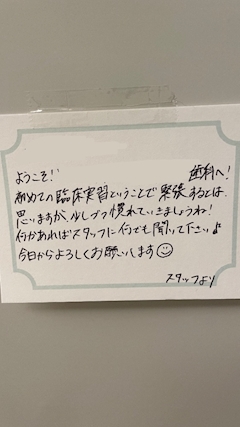 ようこそ! 歯科へ!
初めての臨床実習ということで緊張するとは、
思いますが、少しづつ慣れていきましょうね!
何かあればスタッフに何でも聞いて下さい♪
今日からよろしくお願いします☺
スタッフより